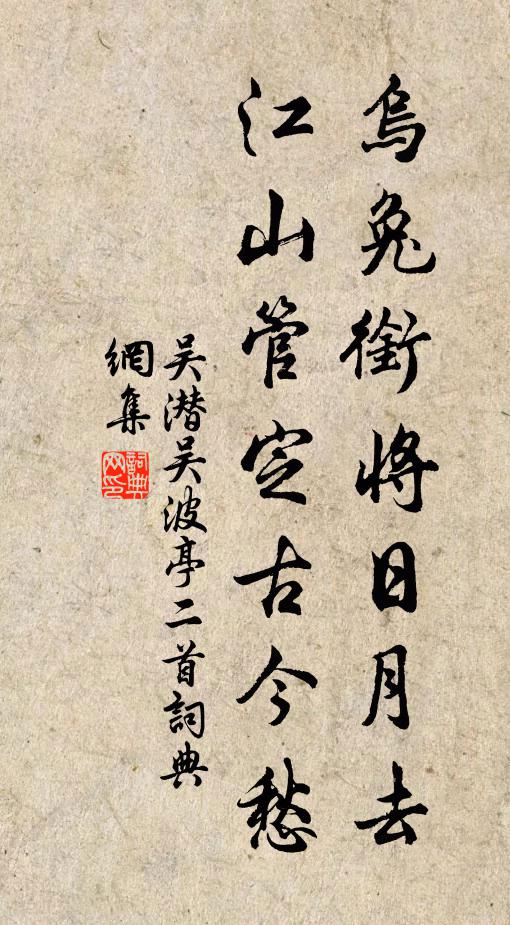 烏兔銜將日月去
江山管定古今愁
吴潜吴波亭二首詞典
網集
詞典
网印